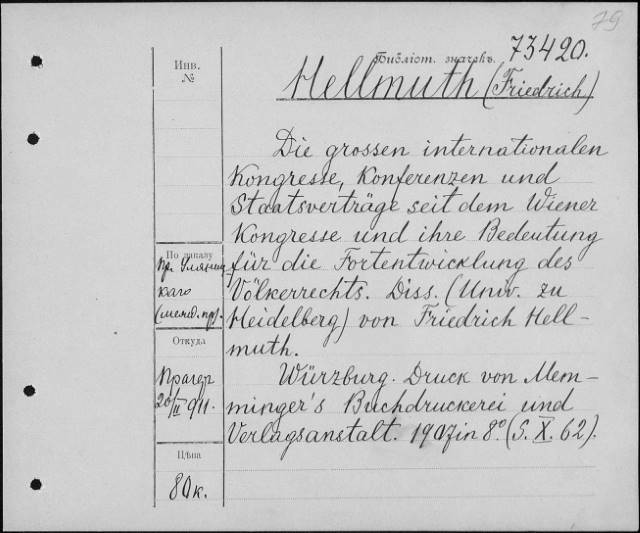 79
Библіот. значекъ. 73420.
Инв.
№
Hellmuth (Friedrich)
Die grossen internationalen
Kongresse, Konferenzen und
Staatsverträge seit dem Wiener
Kongresse und ihre Bedeutung
für die Fortentwicklung des
Völkerrechts. Diss. (Univ. zu
Heidelberg) von Friedrich Hell-
muth.
Würzburg. Druck von Mem-
minger's Buchdruckerei und
Verlagsanstalt. 1907 in 8º (S. X. 62).
По заказу
пр. Уляниц-
каго
(межд. пр).
Откуда
Прагер
20/II 911.
Цѣна
80к.